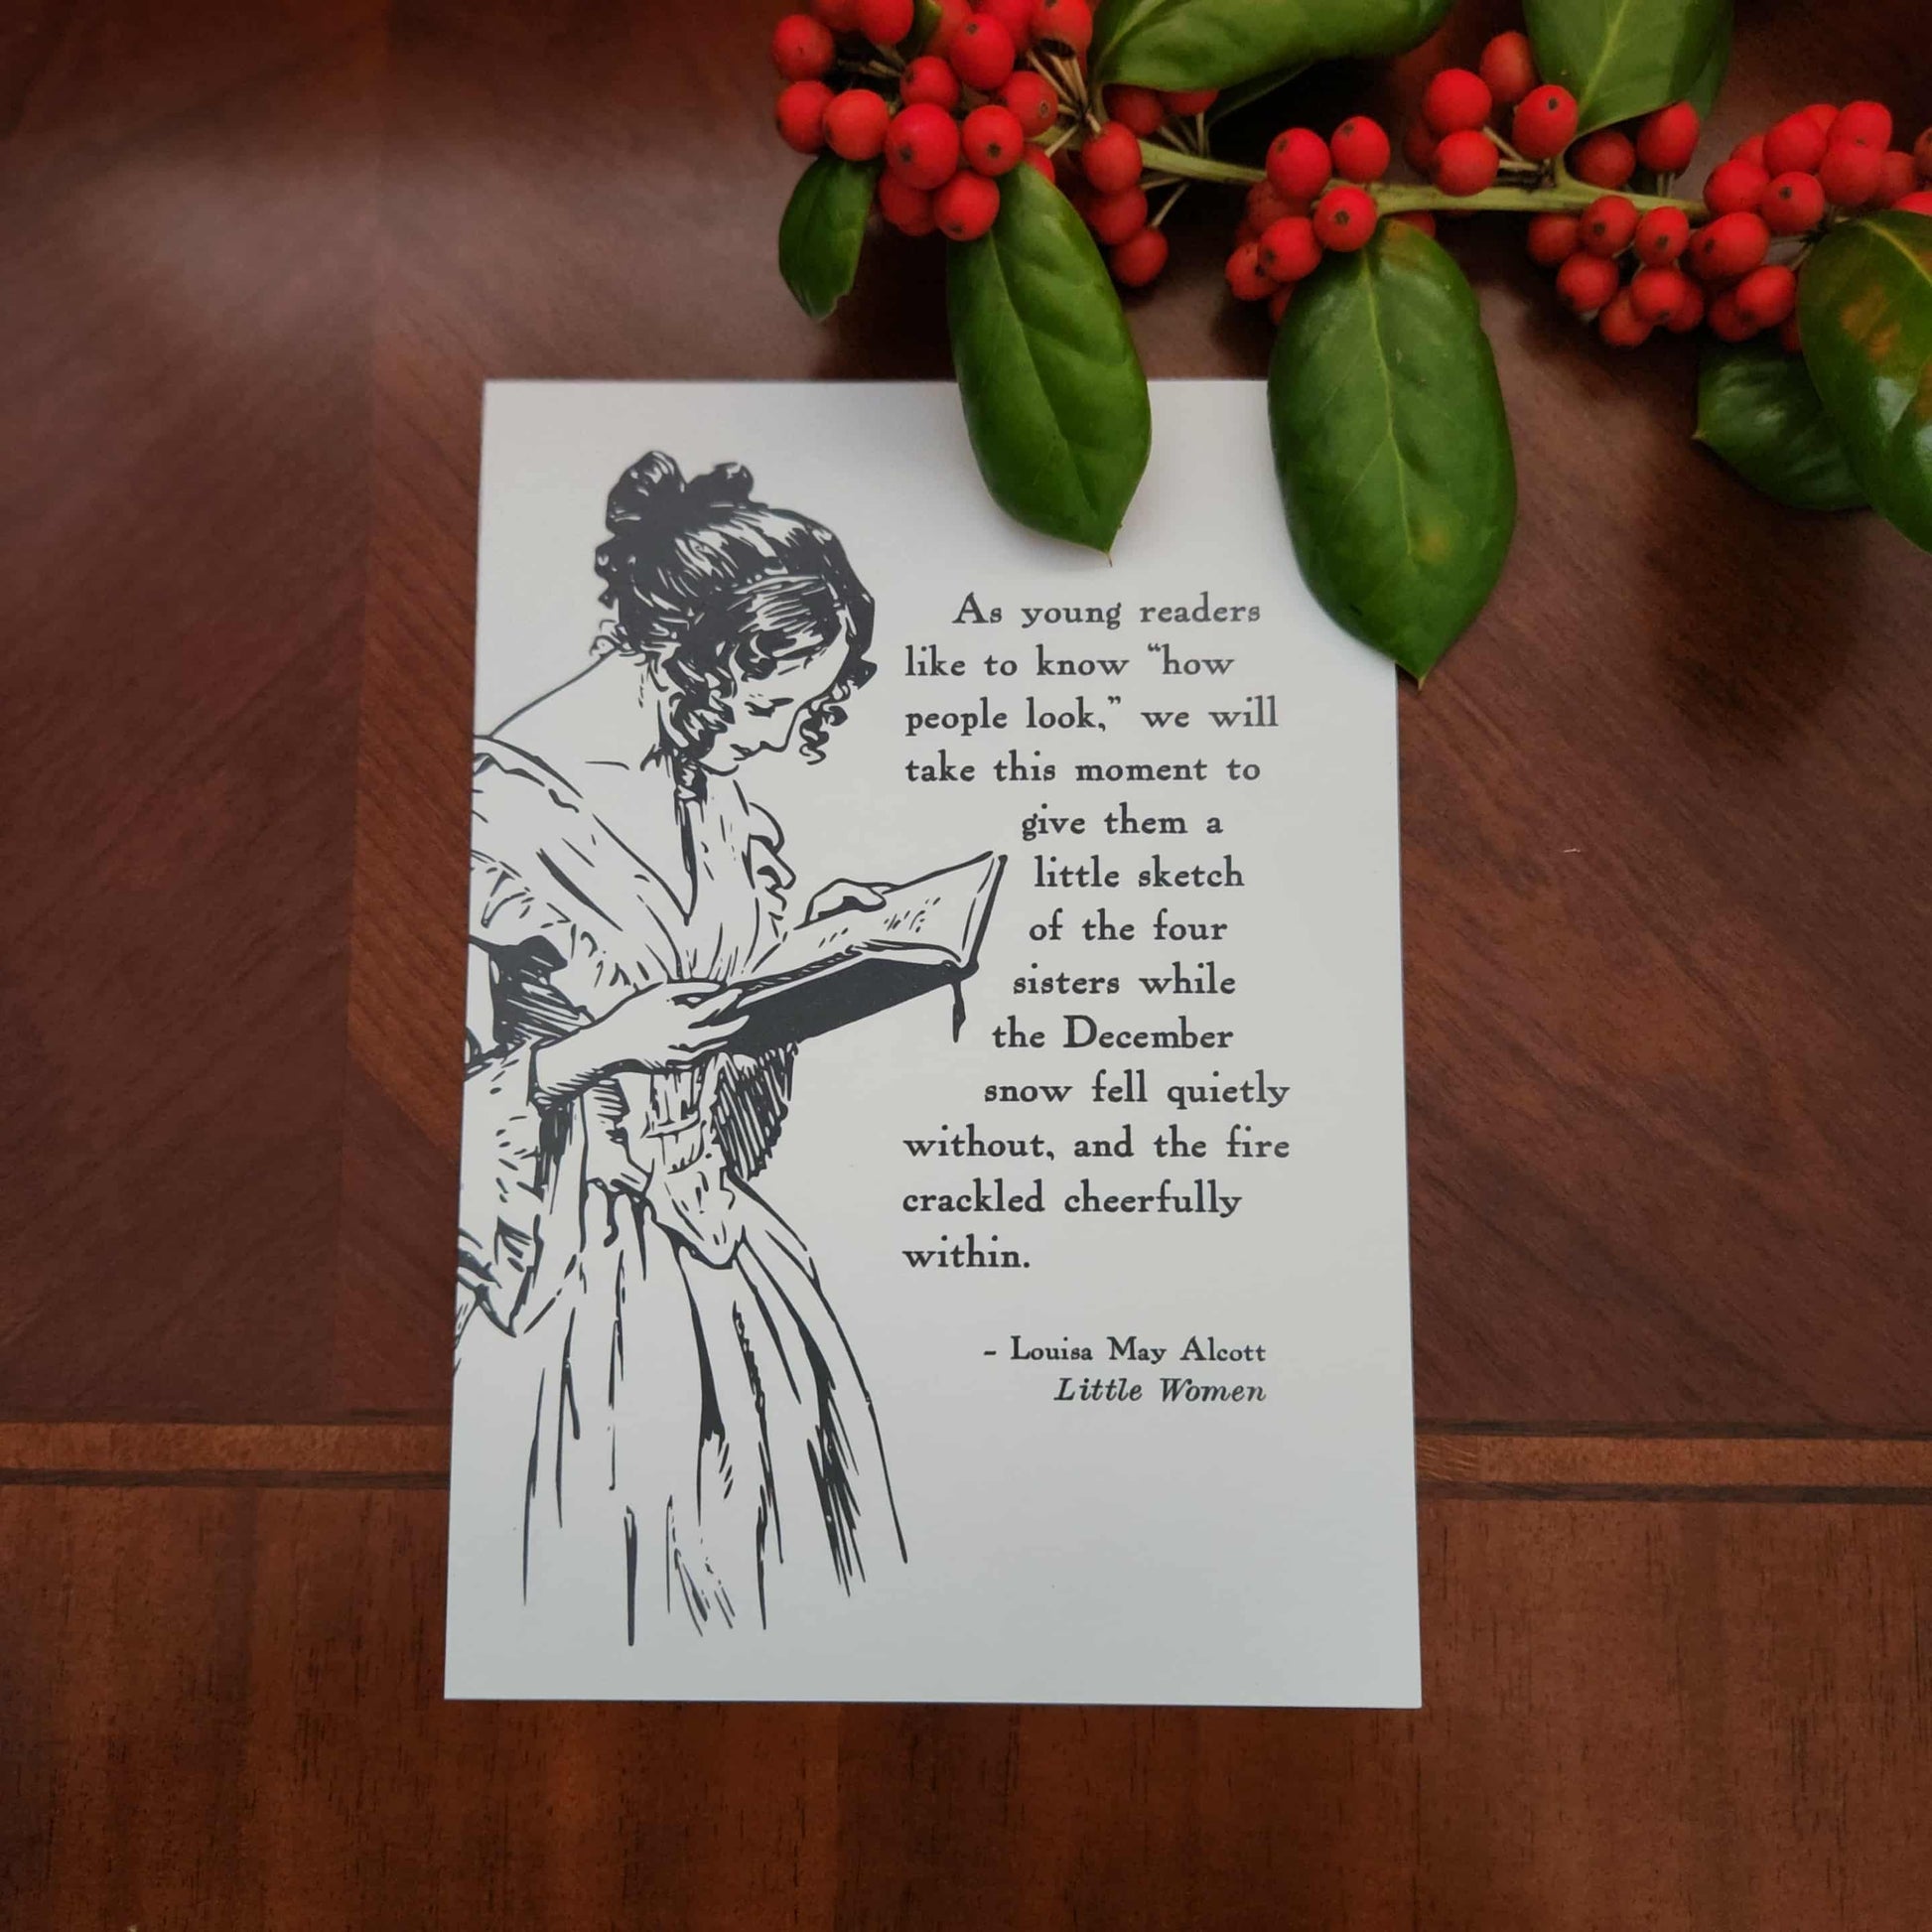 As young readers
like to know “how
people look,” we will
take this moment to
give them a
little sketch
of the four
sisters while
the December
snow fell quietly
without, and the fire
crackled cheerfully
within.
- Louisa May Alcott
Little Women